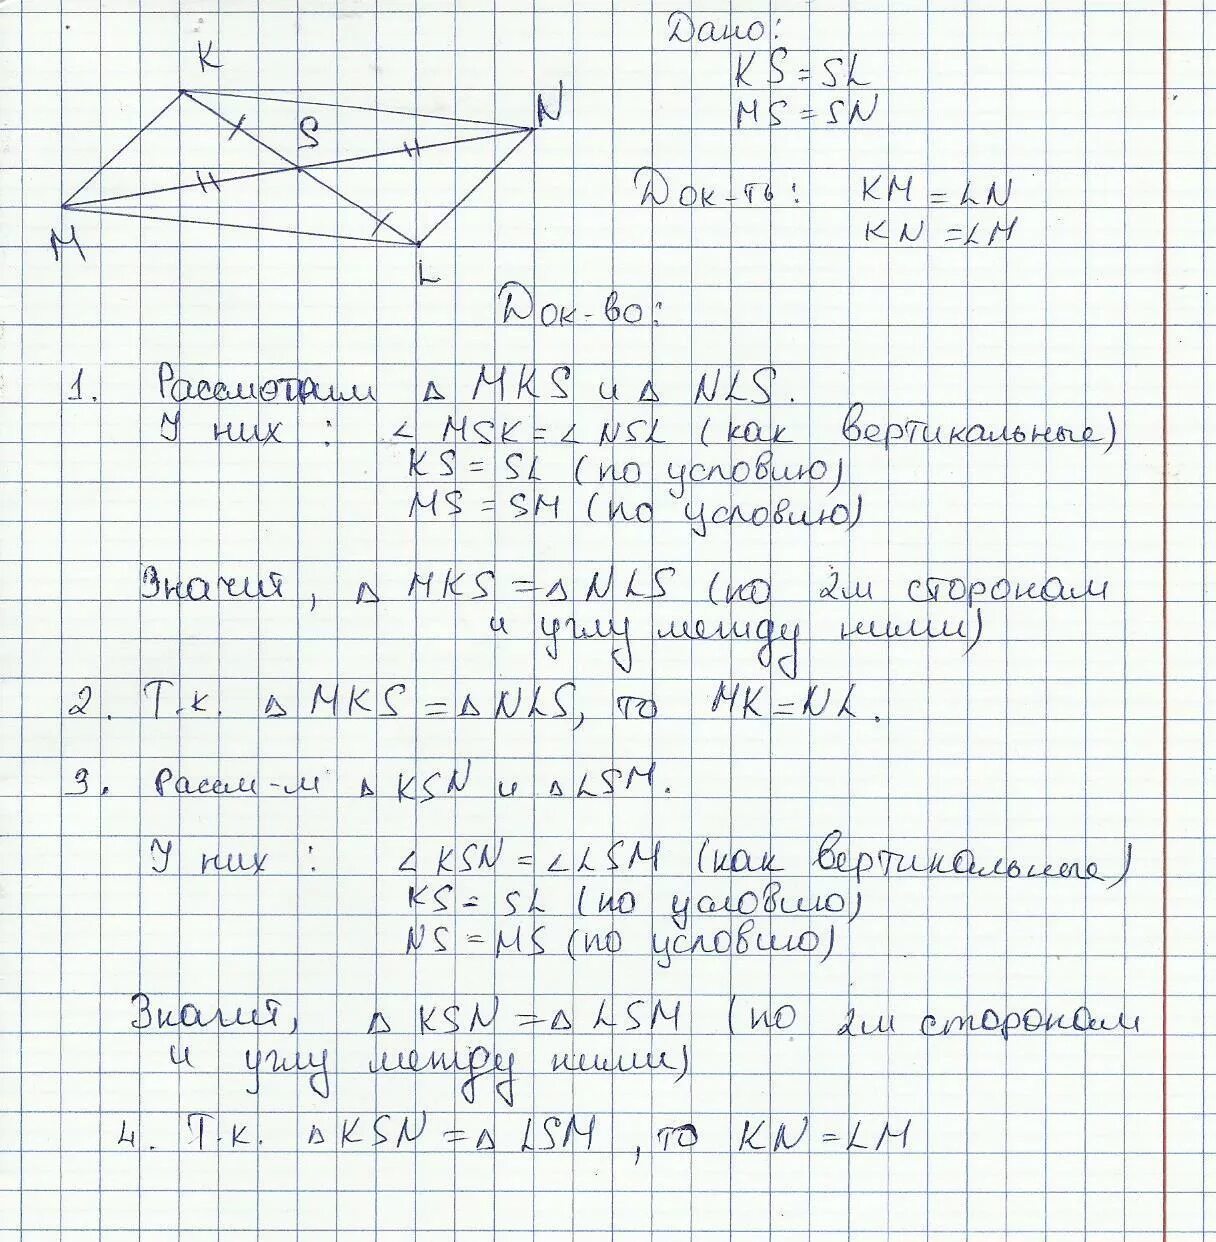 K
S
N
M
L
Дано:
KS = SL
MS = SN
Док-ть: KM = LN
KN = LM
Док-во:
1. Рассмотрим △ MKS и △ NLS.
У них : ∠ MSK = ∠ NSL (как вертикальные)
KS = SL (по условию)
MS = SM (по условию)
Значит, △ MKS = △ NLS (по 2м сторонам
и углу между ними)
2. Т.к. △ MKS = △ NLS, то MK = NL.
3. Рассм-м △ KSN и △ LSM.
У них : ∠ KSN = ∠ LSM (как вертикальные)
KS = SL (по условию)
NS = MS (по условию)
Значит, △ KSN = △ LSM (по 2м сторонам
и углу между ними)
4. Т.к. △ KSN = △ LSM, то KN = LM